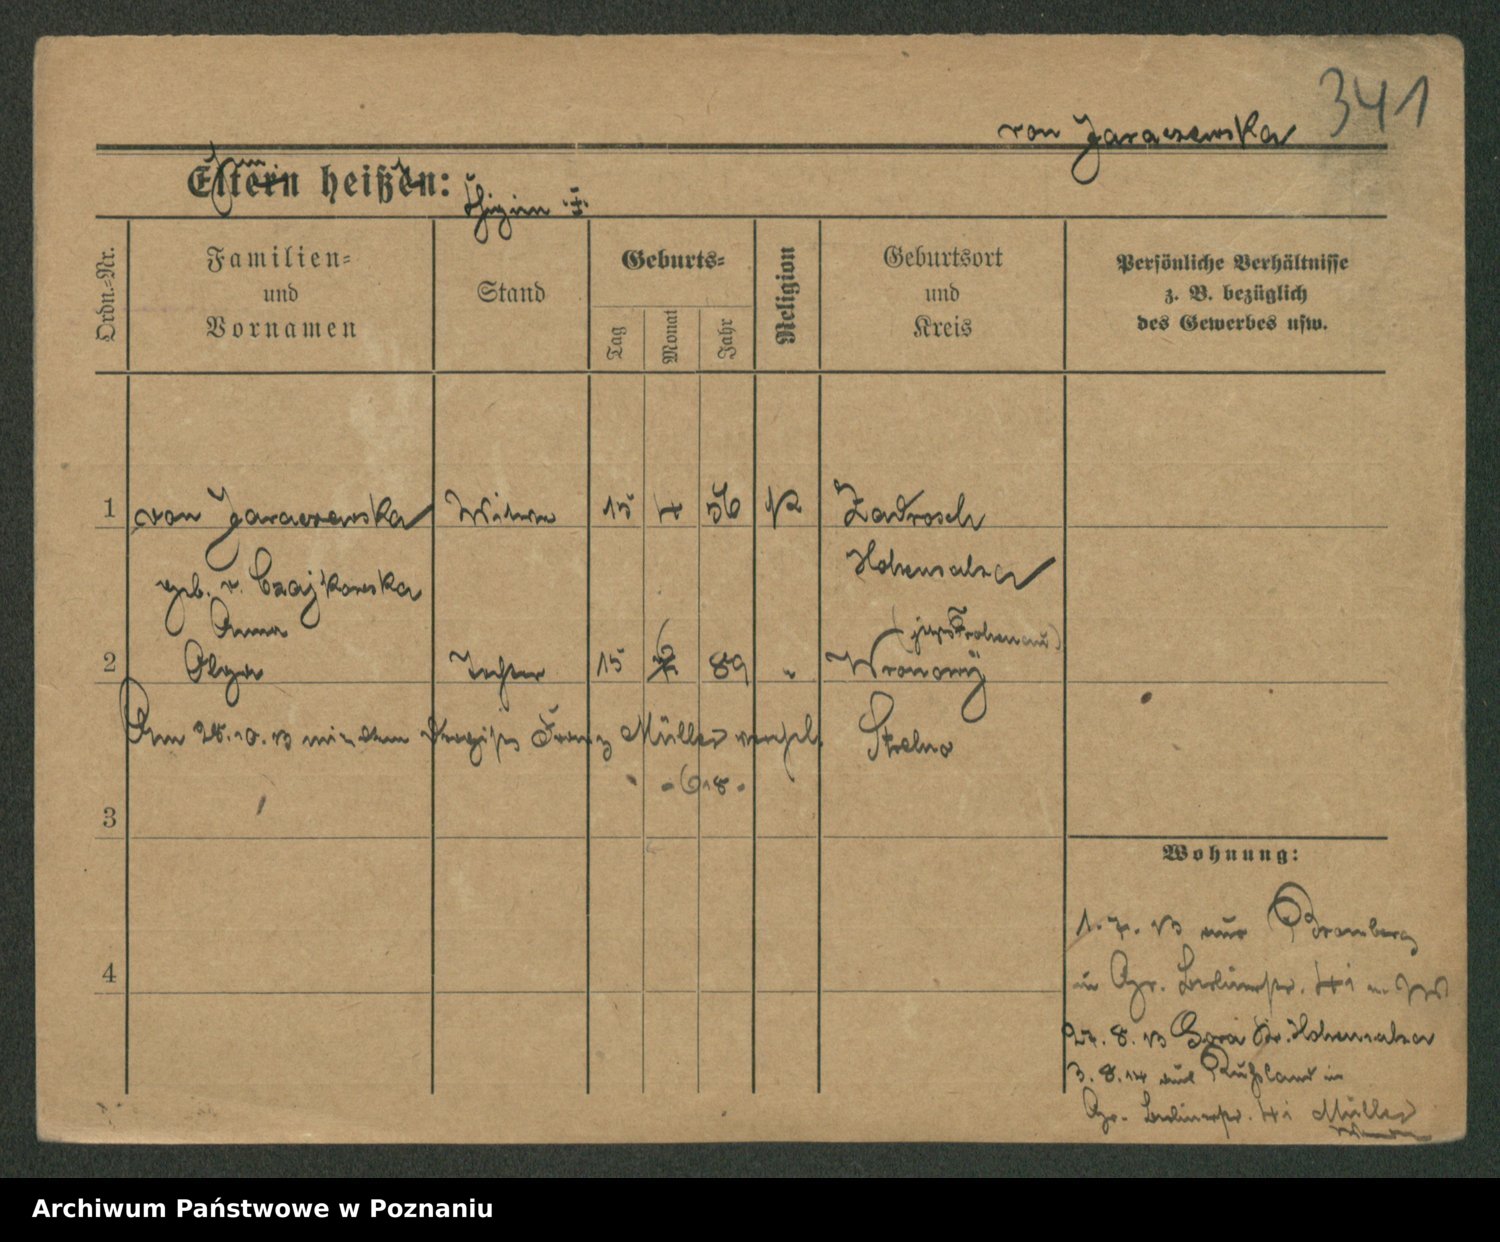 341
von Jaraczewska
Eltern heißen:
Ordn.-Nr.
Familien-
und
Vornamen
Stand
Geburts-
Tag
Monat
Jahr
Religion
Geburtsort
und
Kreis
Persönliche Verhältnisse
z. B. bezüglich
des Gewerbes usw.
1 von Jaraczewska Witwe 15 4 56 K Zadrosch
Hohensalza
geb. v. Czajkowska
Anna
(jetzt Frohenau)
2 Olga Tochter 15 6 89 " Wronowy
Am 28.10.13 mit dem Franz Müller verehel.
Strelno
3
Wohnung:
1.7.13 aus Bromberg
4
in Berlinerstr. 4
27.8.13 Gora Kr. Hohensalza
3.8.14 aus Rußland in
Berlinerstr. 4 Müller
Archiwum Państwowe w Poznaniu